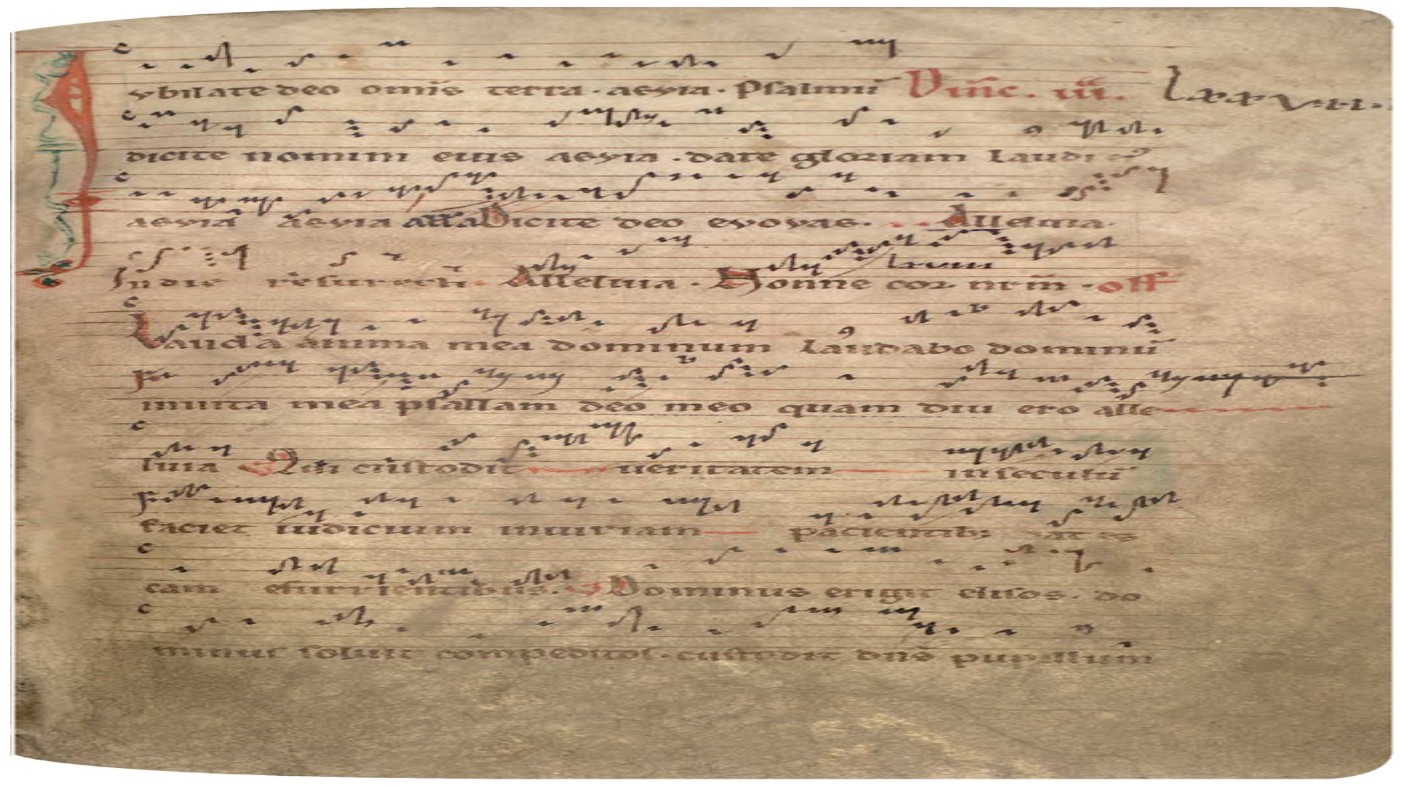 Iubilate deo omīs terra · aevia · Psalmū Dn̄ic . iii . lxxvii .
dicite nomini eius aevia · date gloriam laudi
aevia aevia Dicite deo evovae . Alleluia .
In die resurrecti Alleluia . Nonne cor nrm̄ . off
Lauda anima mea dominum laudabo dominū
in uita mea psallam deo meo quam diu ero alle
luia Qui custodit ueritatem in seculū
faciet iudicium iniuriam pacientib;
cam esurientibus . Dominus erigit elisos . do
minus soluit compeditos . custodit dn̄s pupillum